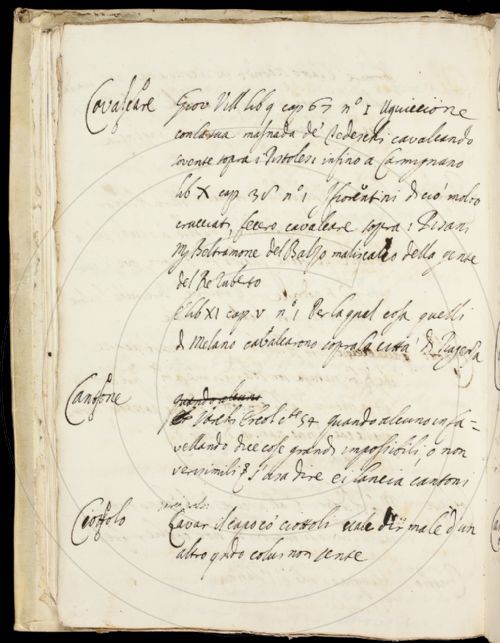 Cavalcare Giov Vill lib 9 cap 67 n° 1 Uguiccione
con la sua masnada de Tedeschi cavalcando
sovente sopra i Pistolesi infino a Carmignano
lib X cap 38 n° 1 I fiorentini di ciò molto
crucciati, fecero cavalcare sopra i Pisani
Mr Beltramone del Balzo maliscalco della gente
del Re Ruberto
E lib XI cap V n° 1 Per la qual cosa quelli
di Melano cavalcarono sopra la città di Piagenza
Cantone quando alcuno
Varchi Ercol 54 quando alcuno in fa=
vellando dice cose grandi impossibili, o non
verisimili s'usa dire ei lancia cantoni
Ciottolo Lavar il capo co ciottoli vale dir male d'un
altro qndo colui non sente